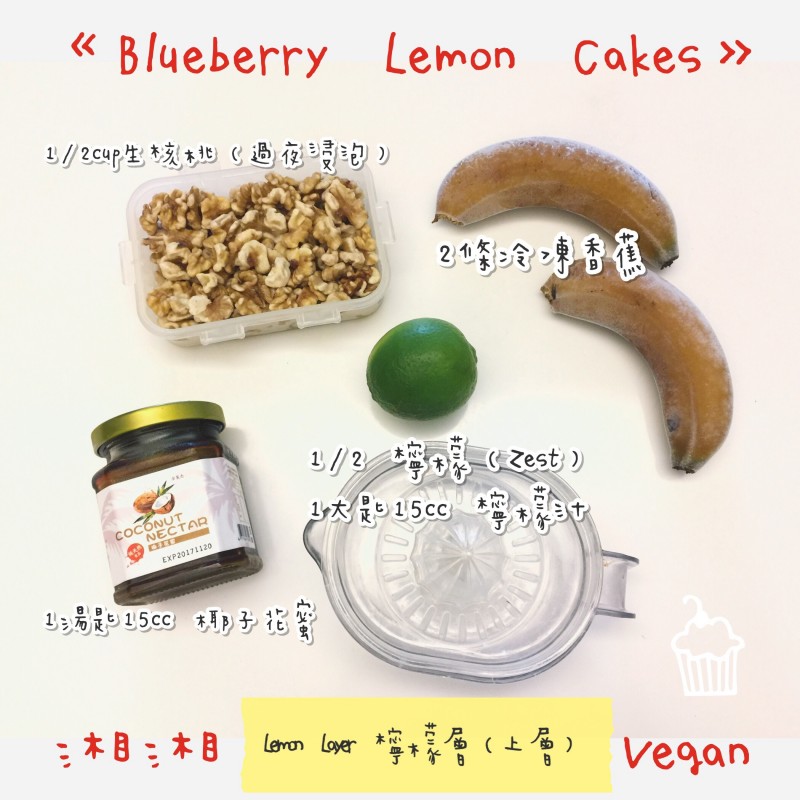 « Blueberry Lemon Cakes »
1/2cup生核桃(過夜浸泡)
2條冷凍香蕉
1/2 檸檬(Zest)
1大匙15cc 檸檬汁
COCONUT
NECTAR
椰子花蜜
EXP20171120
1湯匙15cc 椰子花蜜
湘湘
Lemon Layer 檸檬層(上層)
Vegan